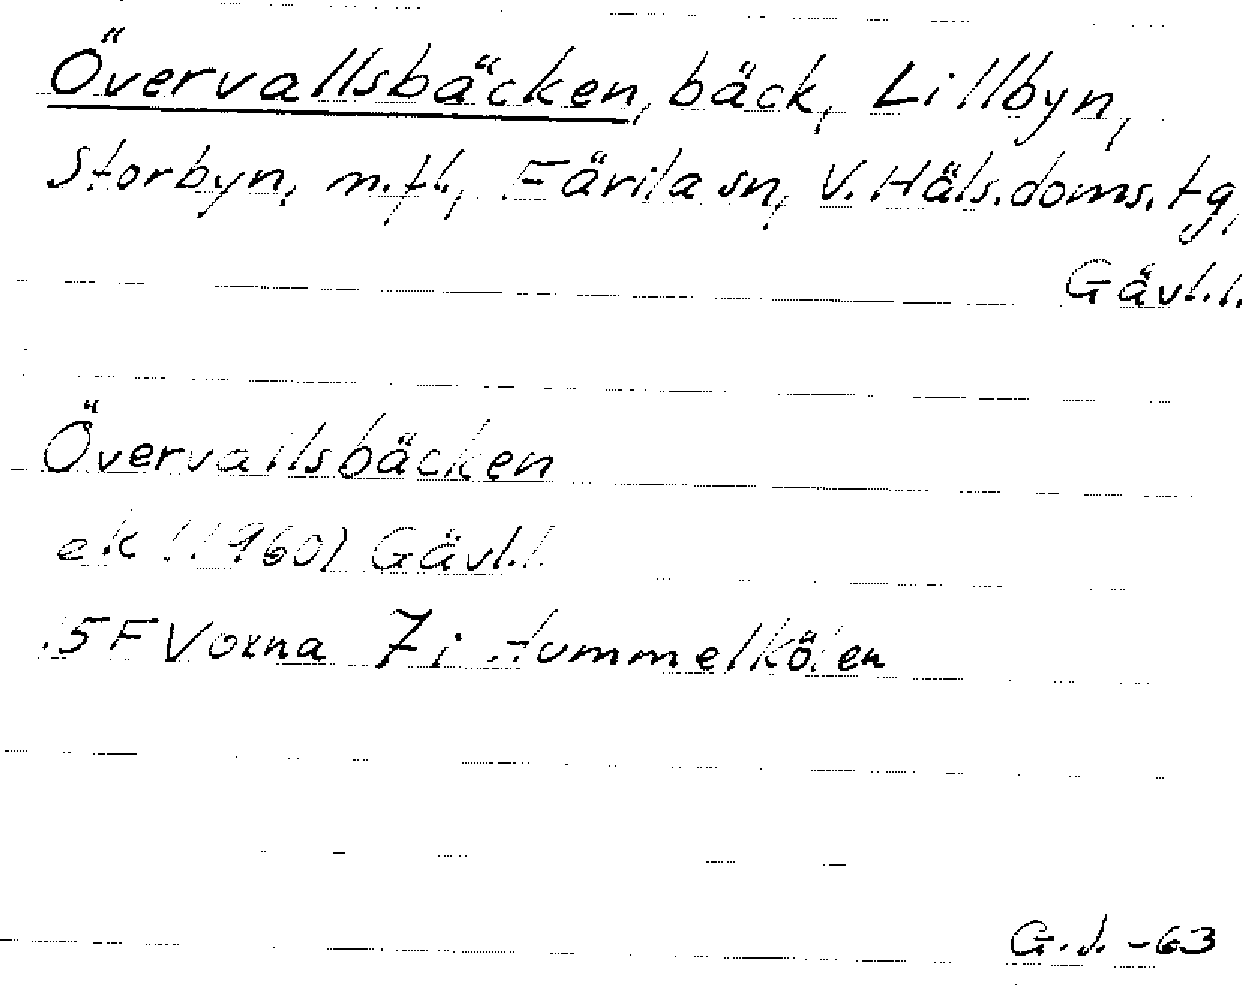 Övervallsbäcken, bäck, Lillbyn,
Storbyn, m.fl., Färila sn, V. Häls. doms. tg,
Gävl.l.
Övervallsbäcken
ek (1960) Gävl.l.
5F Voxna 7i tummelkölen
G.L. -63